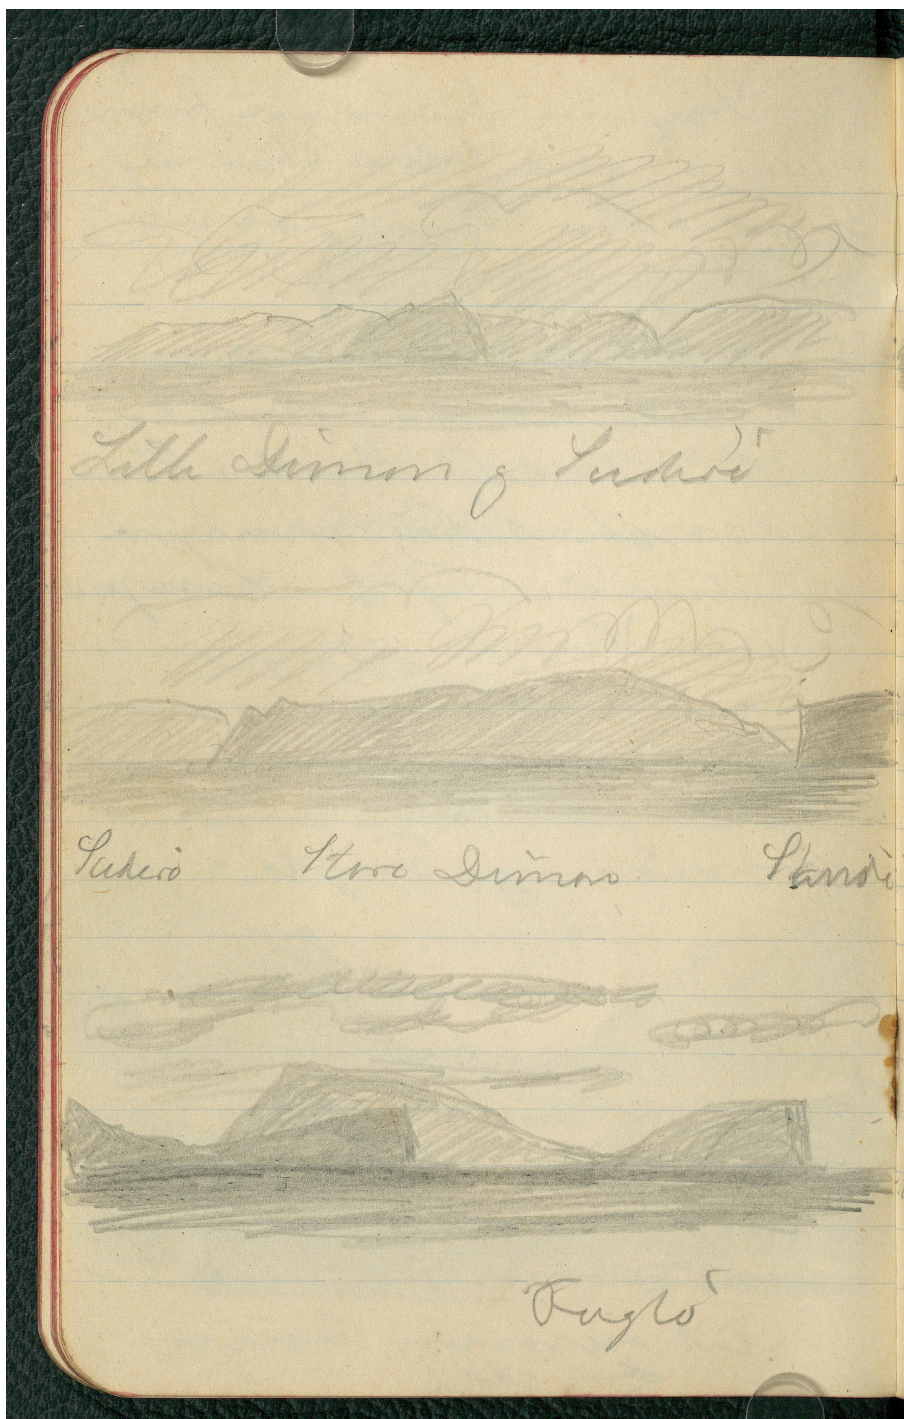 Lille Dimon og Suderö
Suderö Store Dimon Sandö
Fuglö